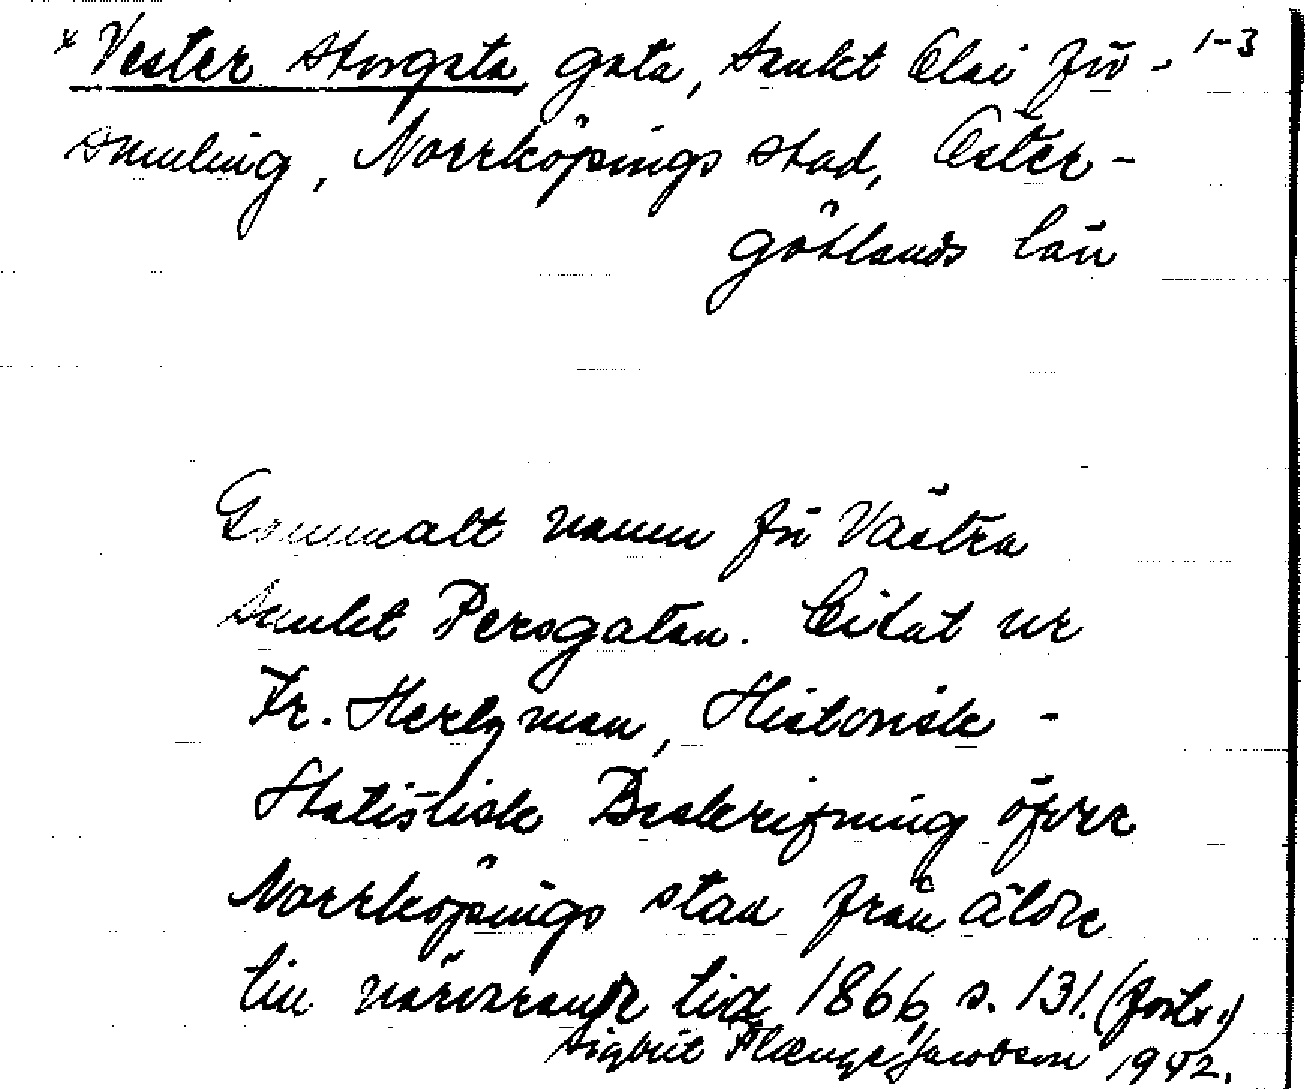 * Vester Storgata, gata, Sankt Olai för- 1-3
samling, Norrköpings stad, Öster-
götlands län
Gammalt namn för Västra
Sankt Persgatan. Citat ur
Fr. Hertzman, Historisk-
Statistisk Beskrifning öfver
Norrköpings stad från äldre
till närvarande tid 1866, s. 131. (forts.)
Sigbrit Plænge Jacobson 1942.